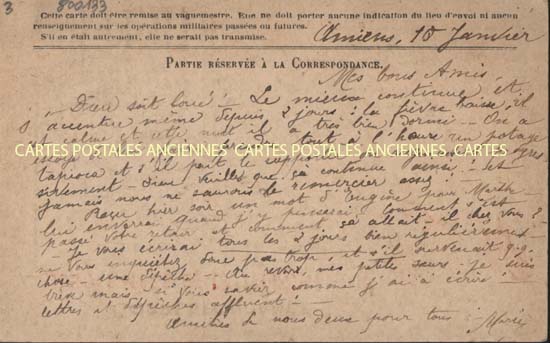 3
800133
Cette carte doit être remise au vaguemestre. Elle ne doit porter aucune indication du lieu d'envoi ni aucun
renseignement sur les opérations militaires passées ou futures.
S'il en était autrement, elle ne serait pas transmise.
Amiens, 15 Janvier
PARTIE RÉSERVÉE À LA CORRESPONDANCE.
Mes bons Amis,
Dieu soit loué! Le mieux continue, et
s'accentue même depuis 2 jours : la fièvre baisse, il
et cette nuit il a très bien dormi — On a
tout à l'heure un potage
CARTES POSTALES ANCIENNES CARTES POSTALES ANCIENNES CARTES
tapioca et s'il peut le
Dieu veuille que sa continue ainsi — et
jamais nous ne saurons le remercier assez
Reçu hier soir un mot d'Eugène pour Marth
lui enverrai quand j'y penserai. Comment s'est
passé votre retour et comment sa allait-il chez vous?
Je vous écrirai tous les 2 jours bien régulièrement
ne vous inquiétez donc pas trop, et s'il survenait q.q.
chose — une dépêche — Au revoir, mes petites sœurs — Je suis
mais si vous saviez comme j'ai à écrire!
lettres et dépêches affluent!
Amitiés de nous deux pour tous : Marie